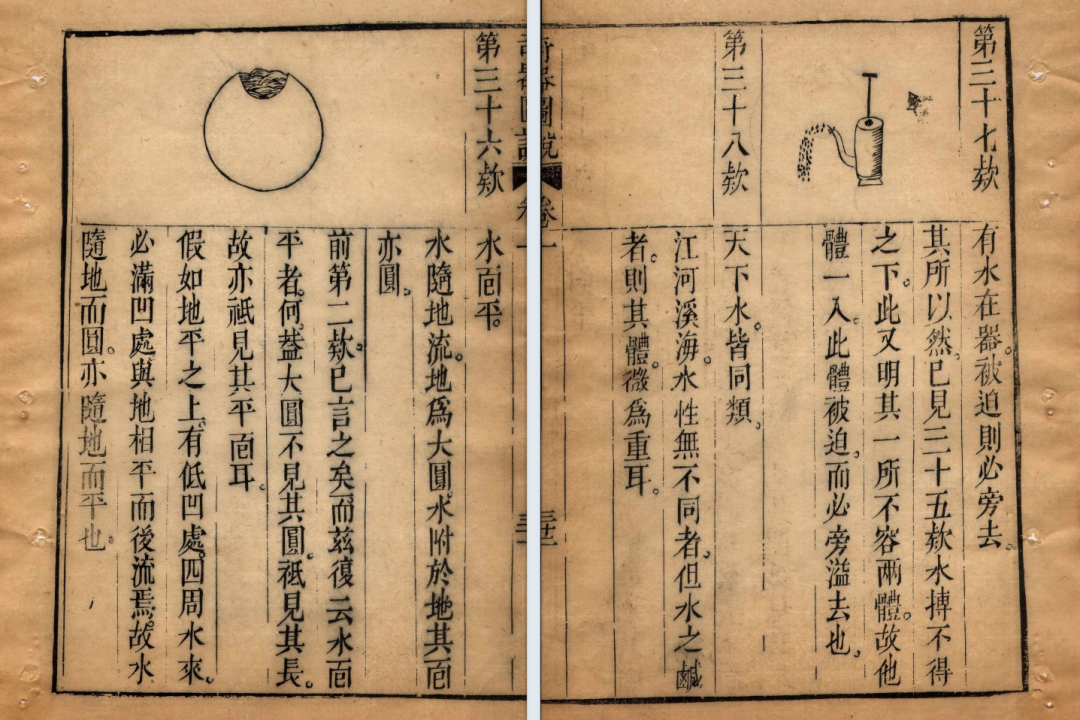 第三十七欵
有水在器。被迫則必旁去。
其所以然。已見三十五欵水搏不得
之下。此又明其一所不容兩體。故他
體一入。此體被迫。而必旁溢去也。
第三十八欵
天下水。皆同類。
江河溪海。水性無不同者。但水之鹹
者。則其體。微爲重耳。
奇器圖說 卷一
第三十六欵
水面平。
水隨地流。地爲大圓。水附於地其面
亦圓。
前第二欵。已言之矣。而茲復云水面
平者。何。葢大圓不見其圓。祇見其長。
故亦祇見其平面耳。
假如地平之上。有低凹處。四周水來。
必滿凹處與地相平而後流焉。故水
隨地而圓。亦隨地而平也。